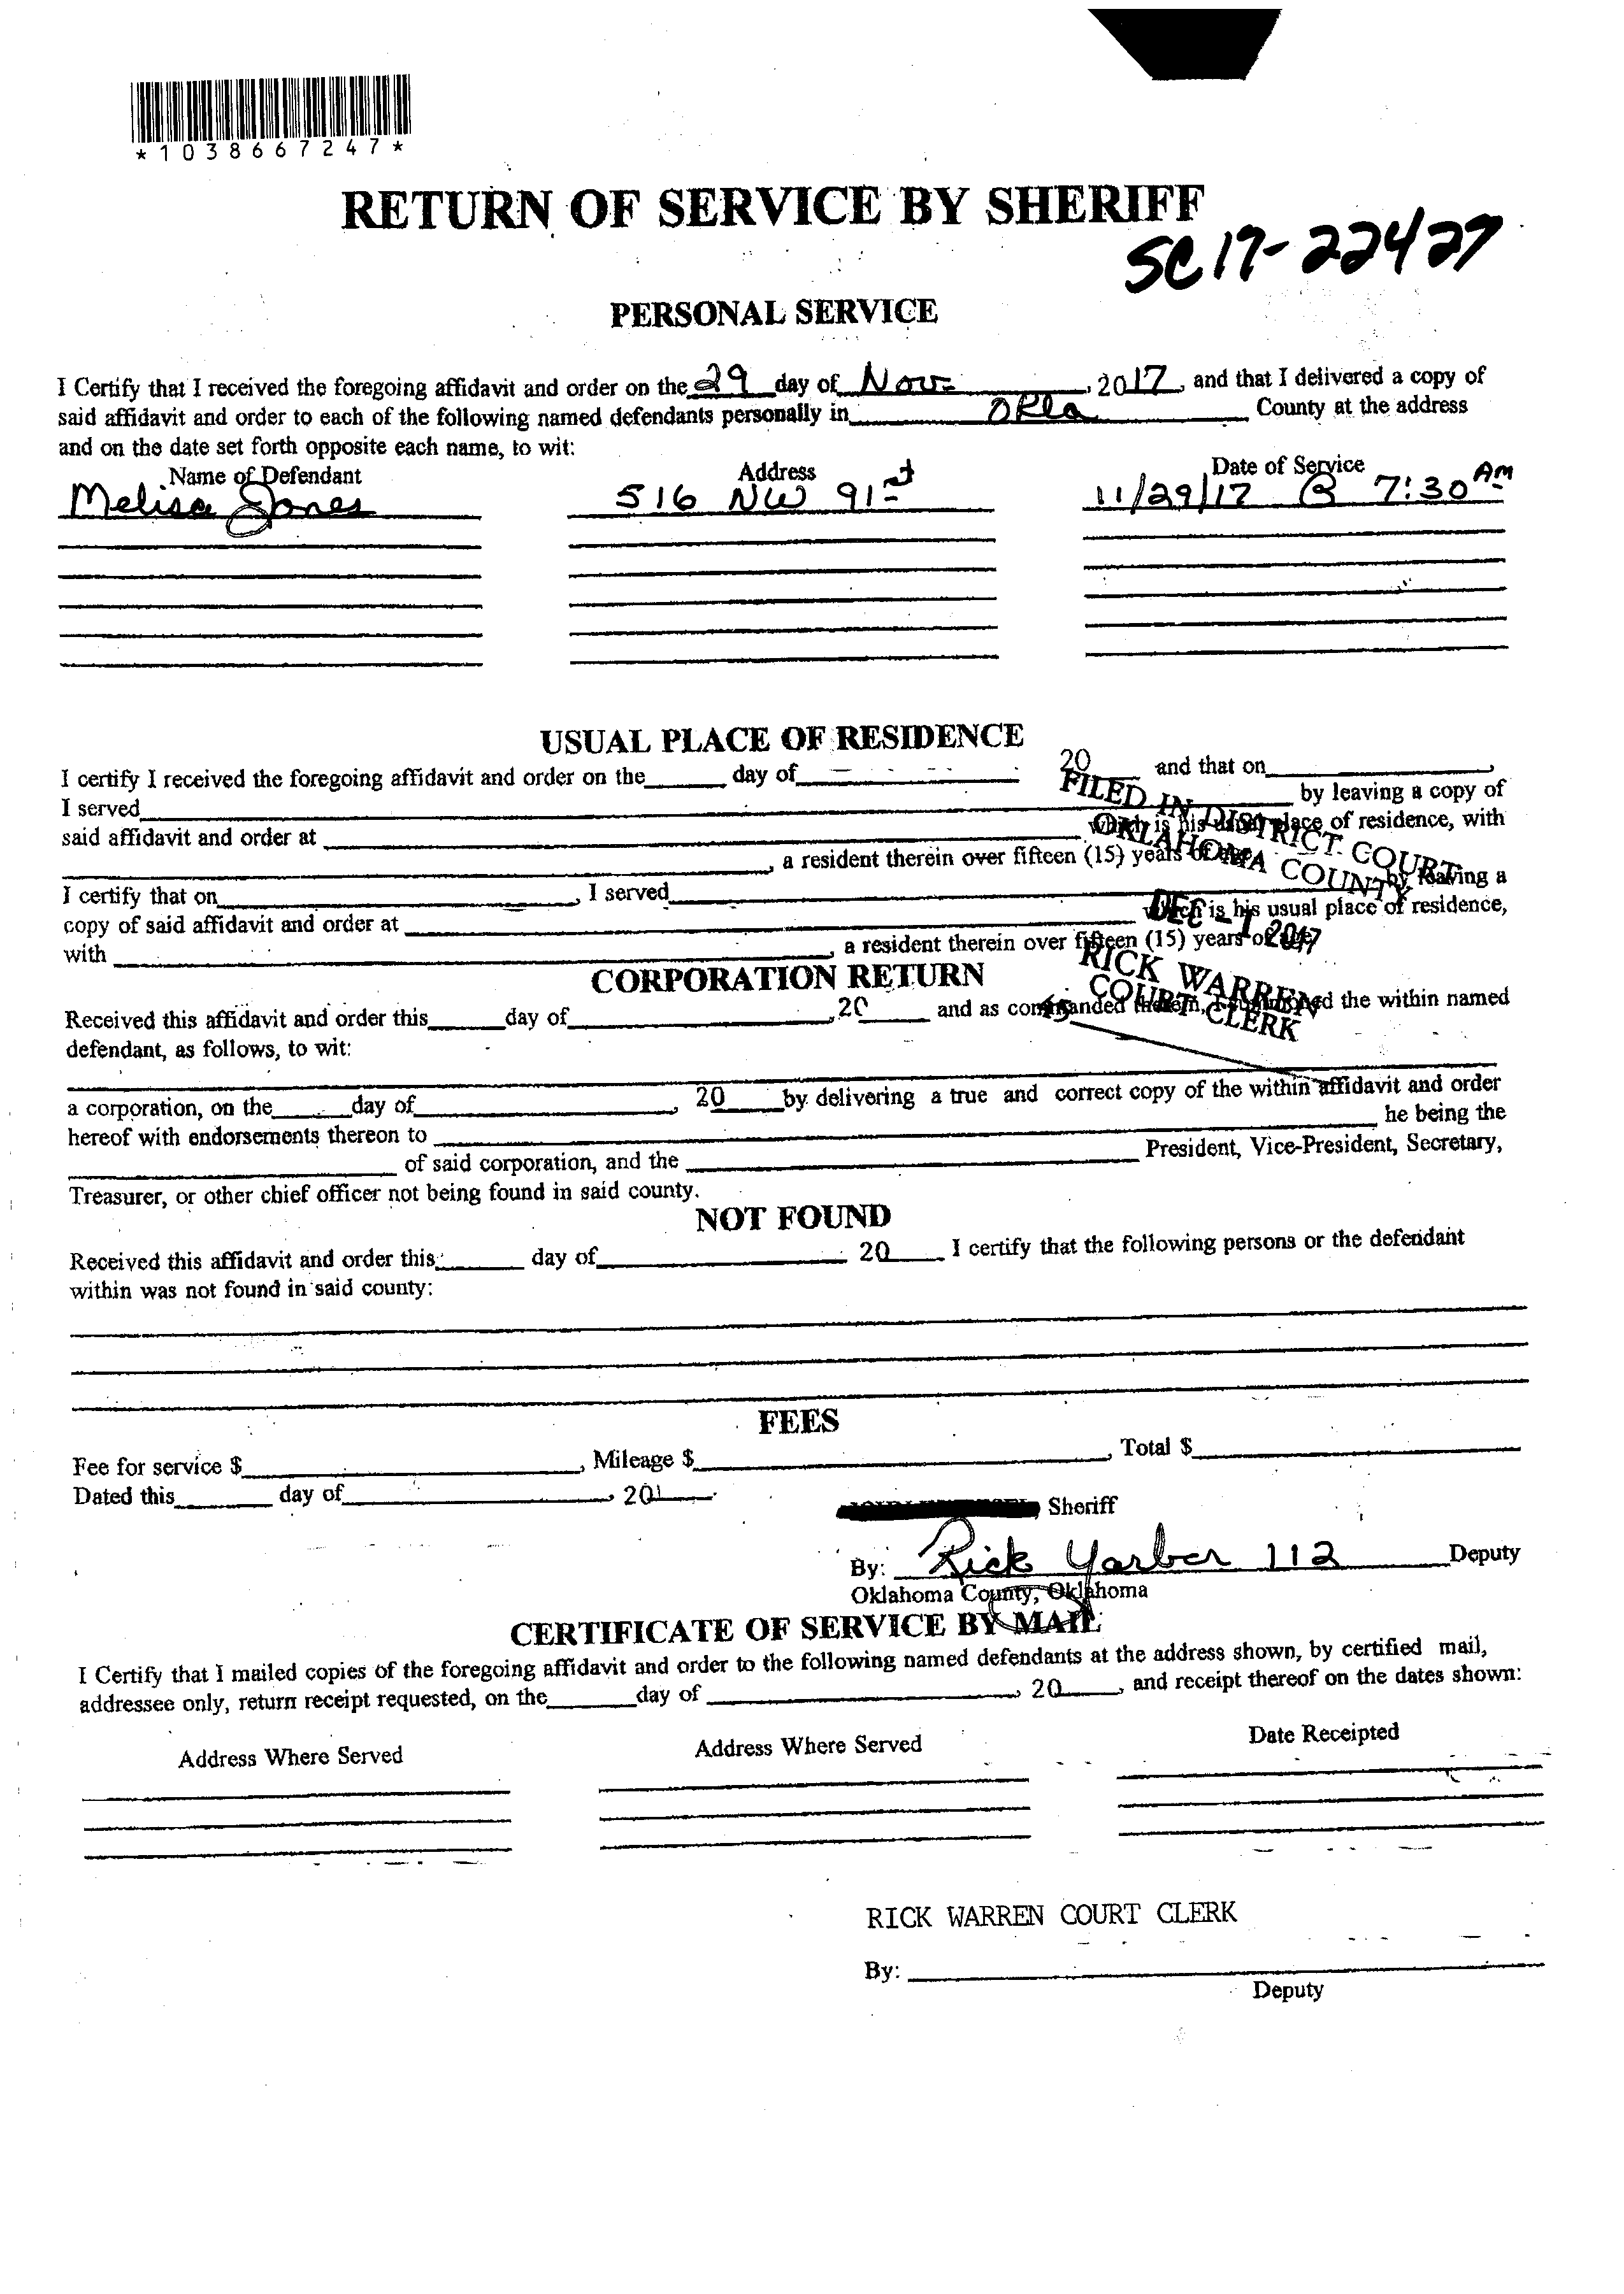 *1038667247*
RETURN OF SERVICE BY SHERIFF
SC 17-22427
PERSONAL SERVICE
I Certify that I received the foregoing affidavit and order on the 29 day of Nov- , 2017, and that I delivered a copy of
said affidavit and order to each of the following named defendants personally in Okla County at the address
and on the date set forth opposite each name, to wit:
Name of Defendant Address Date of Service
Melisa Jones 516 NW 91st 11/29/17 @ 7:30 AM
USUAL PLACE OF RESIDENCE
I certify I received the foregoing affidavit and order on the ____ day of ____ 20__ and that on ____,
I served ____ by leaving a copy of
said affidavit and order at ____ which is his usual place of residence, with
____, a resident therein over fifteen (15) years of age
I certify that on ____, I served ____ by leaving a
copy of said affidavit and order at ____ which is his usual place of residence,
with ____, a resident therein over fifteen (15) years of age
FILED IN DISTRICT COURT
OKLAHOMA COUNTY
DEC - 1 2017
RICK WARREN
COURT CLERK
45
CORPORATION RETURN
Received this affidavit and order this ____ day of ____, 20__ and as commanded therein, I summoned the within named
defendant, as follows, to wit:
a corporation, on the ____ day of ____, 20__ by delivering a true and correct copy of the within affidavit and order
hereof with endorsements thereon to ____ he being the
____ of said corporation, and the ____ President, Vice-President, Secretary,
Treasurer, or other chief officer not being found in said county.
NOT FOUND
Received this affidavit and order this ____ day of ____ 20__ I certify that the following persons or the defendant
within was not found in said county:
FEES
Fee for service $ ____, Mileage $ ____, Total $ ____
Dated this ____ day of ____, 201__
, Sheriff
By: Rick Yarber 112 Deputy
Oklahoma County, Oklahoma
CERTIFICATE OF SERVICE BY MAIL
I Certify that I mailed copies of the foregoing affidavit and order to the following named defendants at the address shown, by certified mail,
addressee only, return receipt requested, on the ____ day of ____, 20__, and receipt thereof on the dates shown:
Address Where Served Address Where Served Date Receipted
RICK WARREN COURT CLERK
By: ____
Deputy